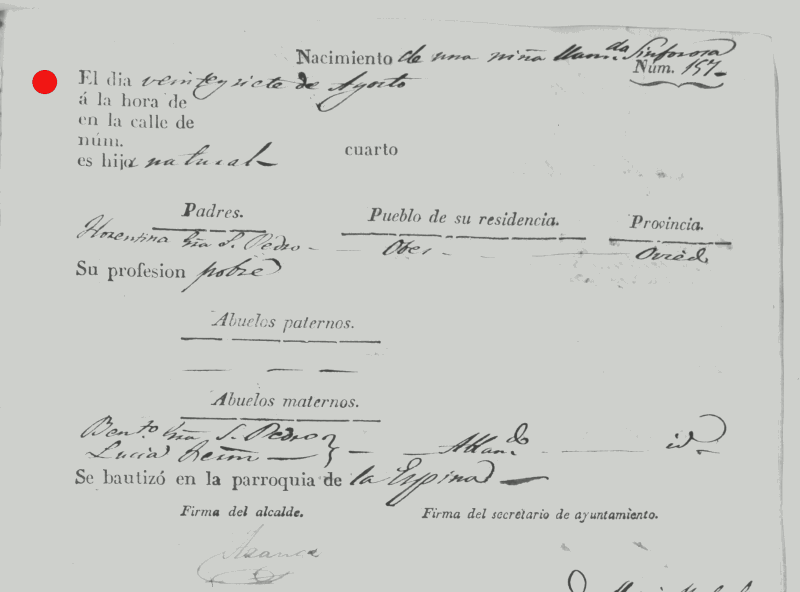 Nacimiento de una niña llamda Sinforosa
Núm. 157
El dia veinte y siete de Agosto
á la hora de
en la calle de
núm. cuarto
es hija natural
Padres. Pueblo de su residencia. Provincia.
Florentina Gra S. Pedro Obes Oviedo
Su profesion pobre
Abuelos paternos.
Abuelos maternos.
Bento Gra S. Pedro
Lucia id
Se bautizó en la parroquia de la Espina
Firma del alcalde. Firma del secretario de ayuntamiento.